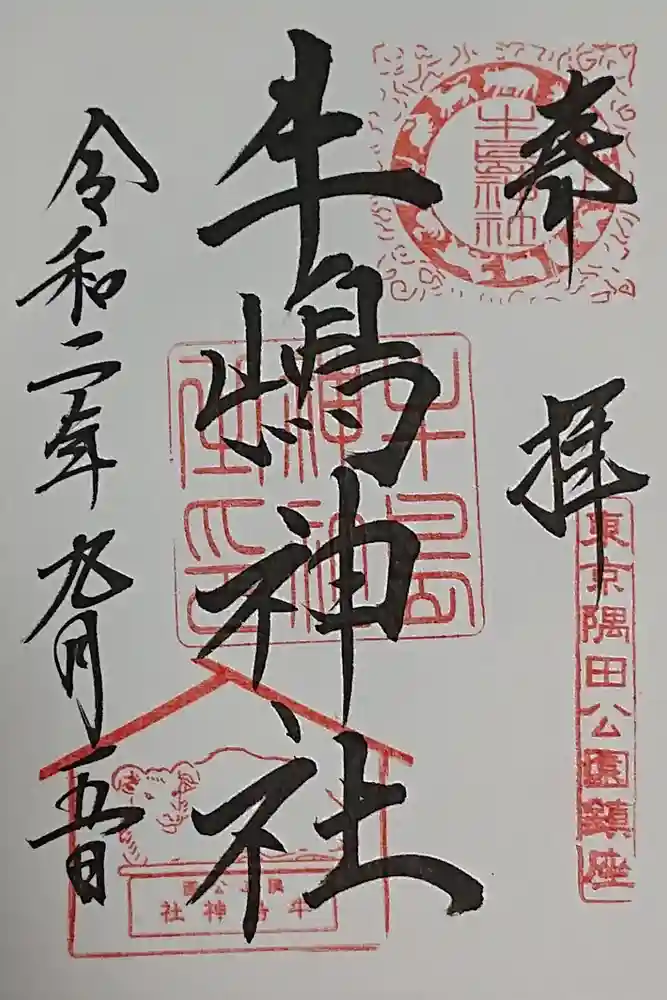 奉拝
牛島神社
東京隅田公園鎮座
牛嶋神社
牛島神社神璽之印
隅田公園
牛島神社
令和二年九月五日